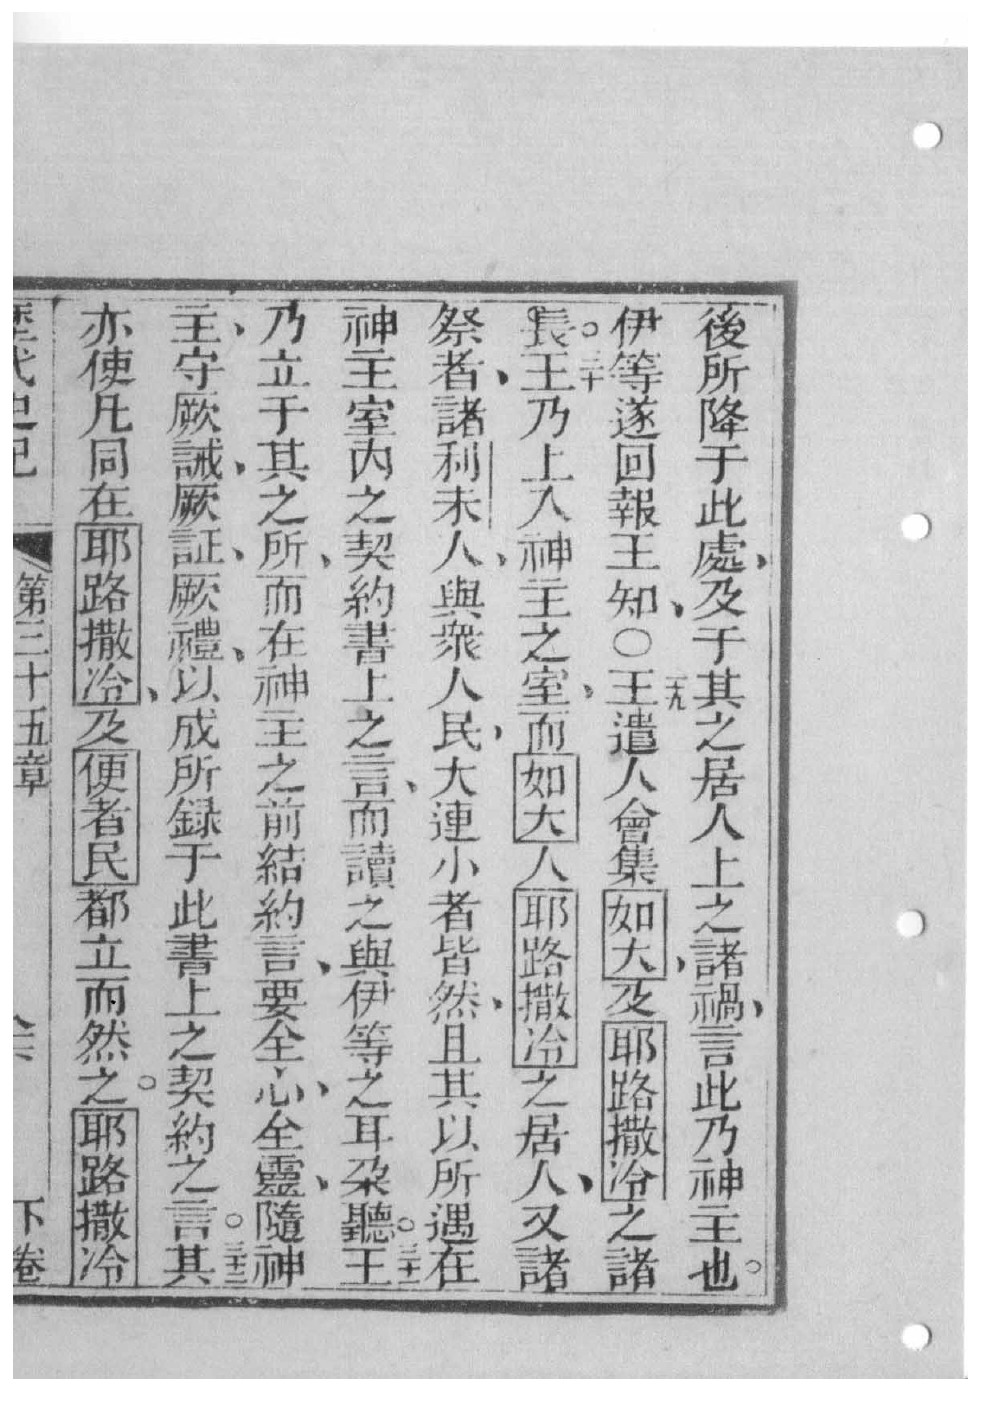 後所降于此處、及于其之居人上之諸禍、言此乃神主也。
伊等遂回報王知、○二九王遣人會集如大、及耶路撒冷之諸
長。三十王乃上入神主之室、而如大人耶路撒冷之居人、又諸
祭者、諸利未人、與衆人民、大連小者皆然、且其以所遇在
神主室内之契約書上之言、而讀之與伊等之耳朶聽。三十一王
乃立于其之所、而在神主之前結約言、要全心、全靈、隨神
主、守厥誡、厥証、厥禮、以成所録于此書上之契約之言。三十二其
亦使凡同在耶路撒冷、及便者民都立而然之。耶路撒冷
歷代史記 第三十五章 下卷